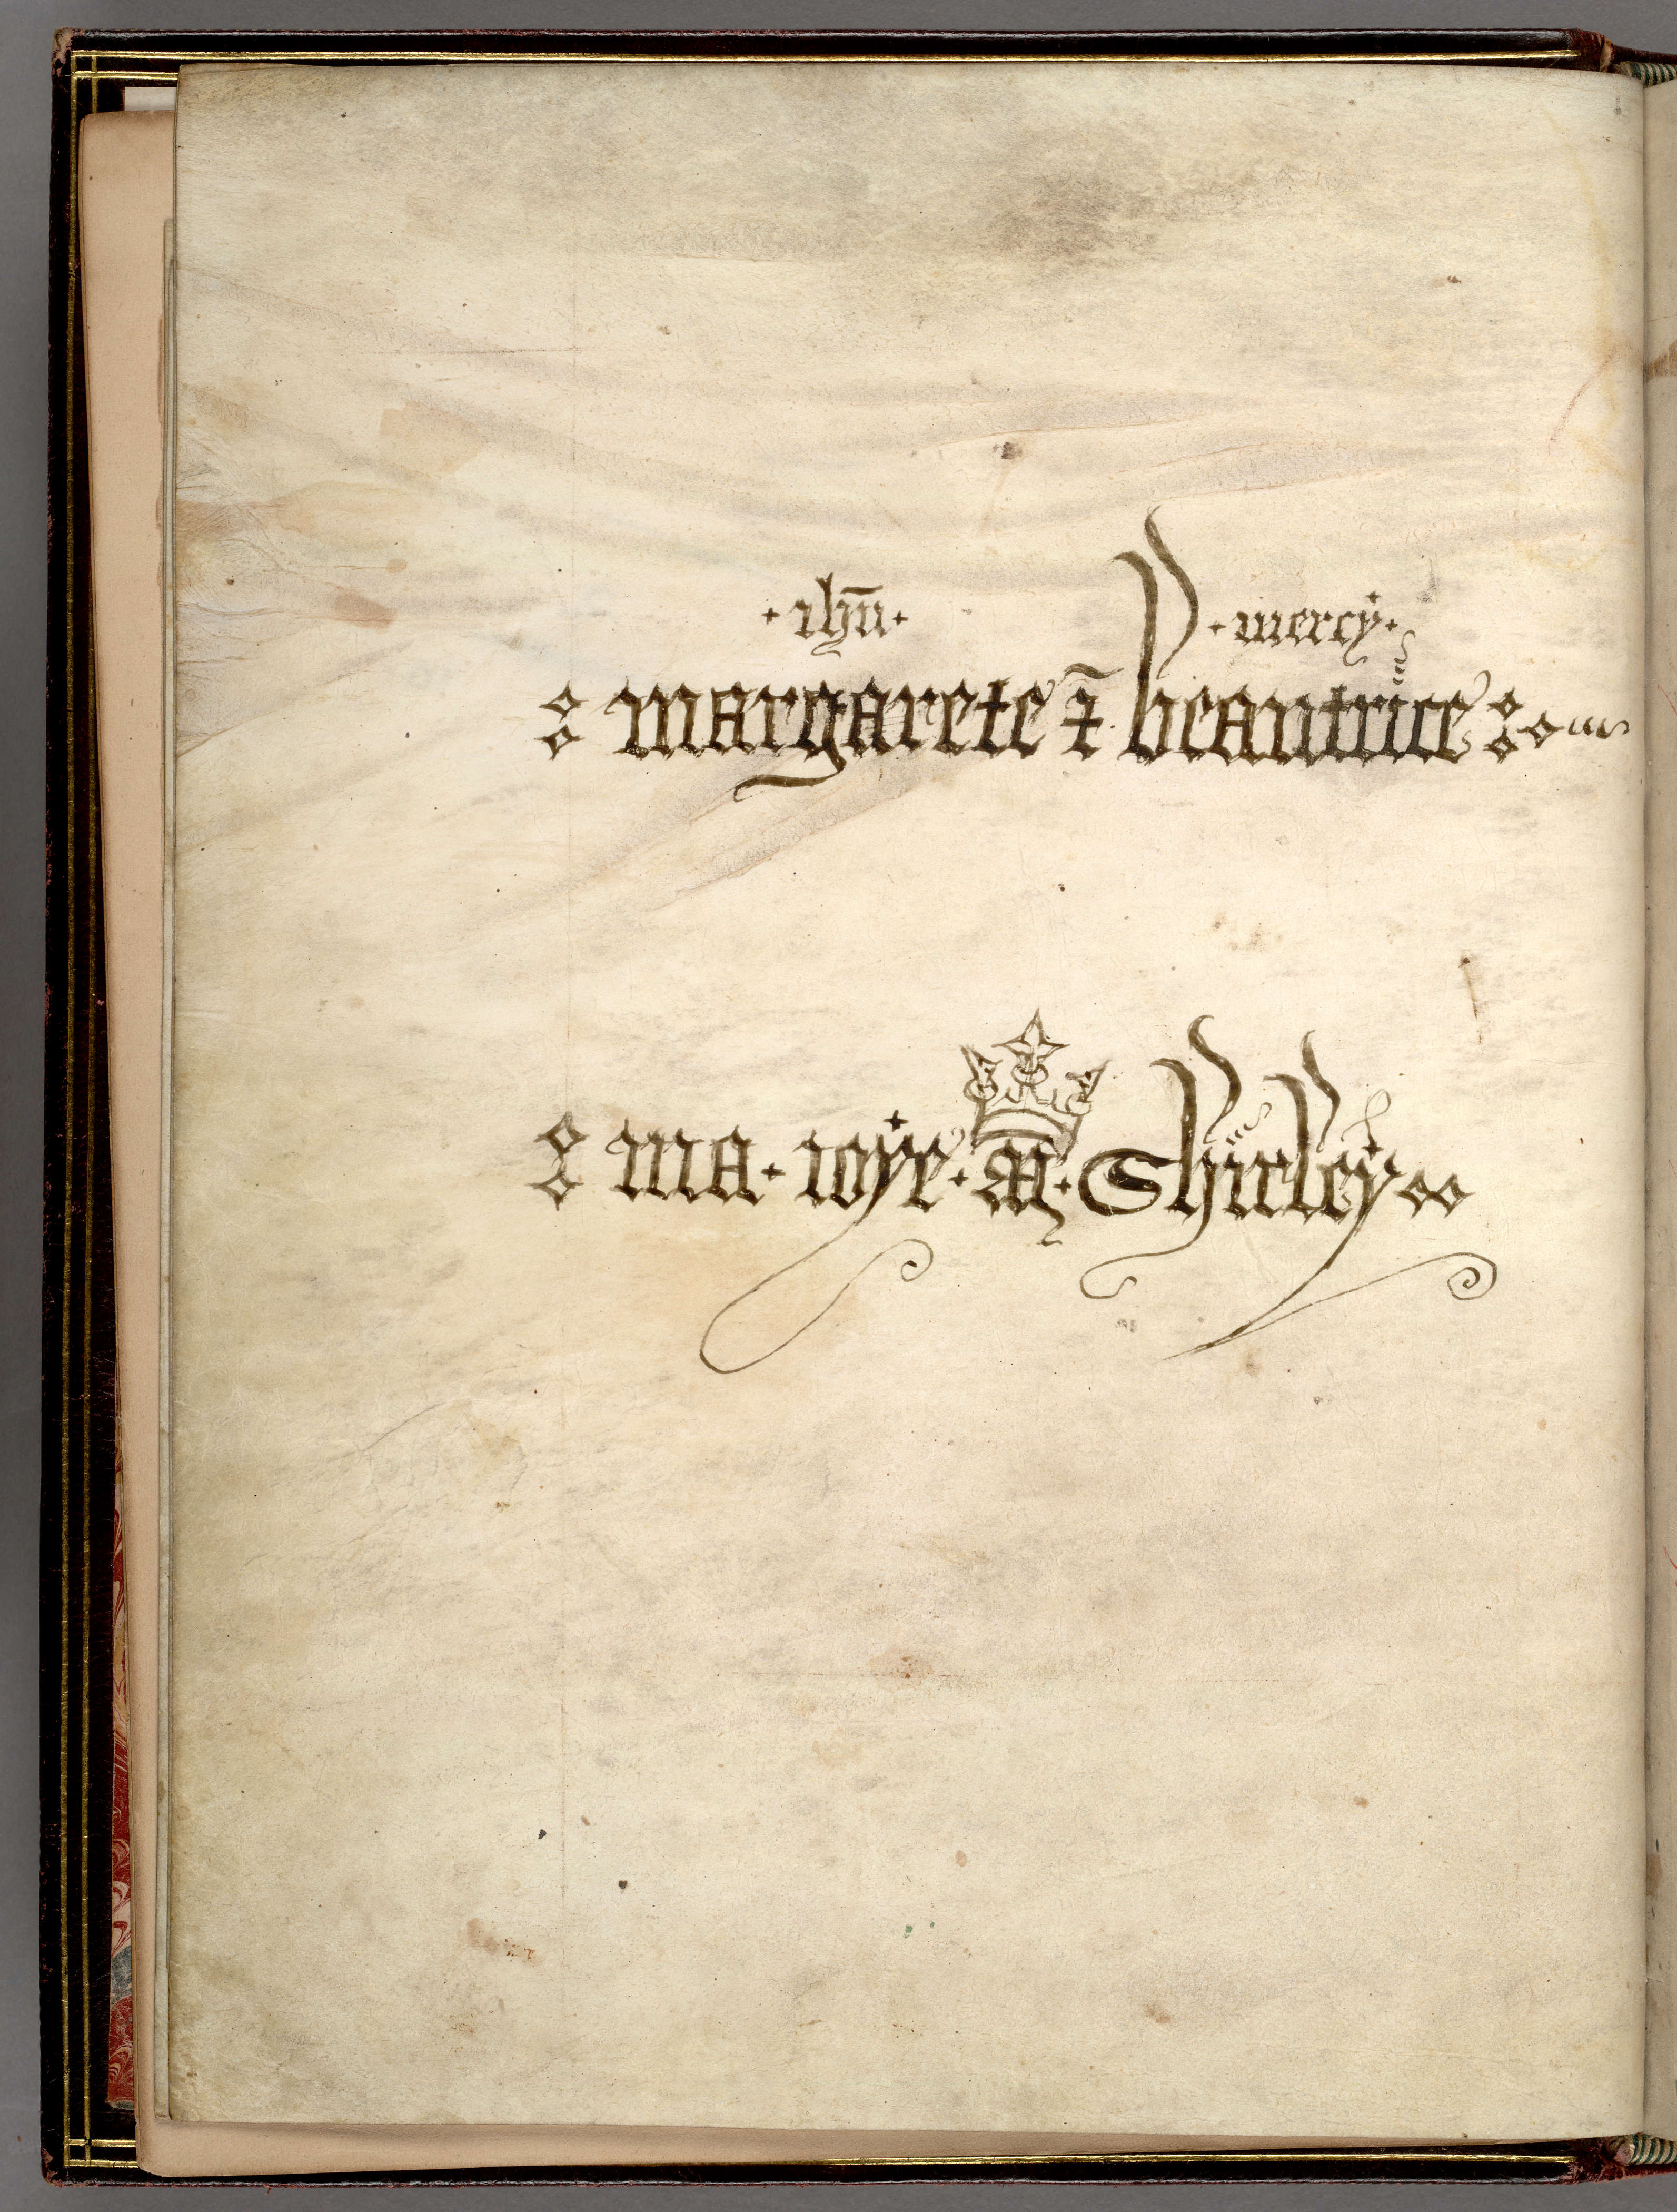 · ihū · · mercy ·
margarete ⁊ beautrice
ma · ioye · M · Shirley